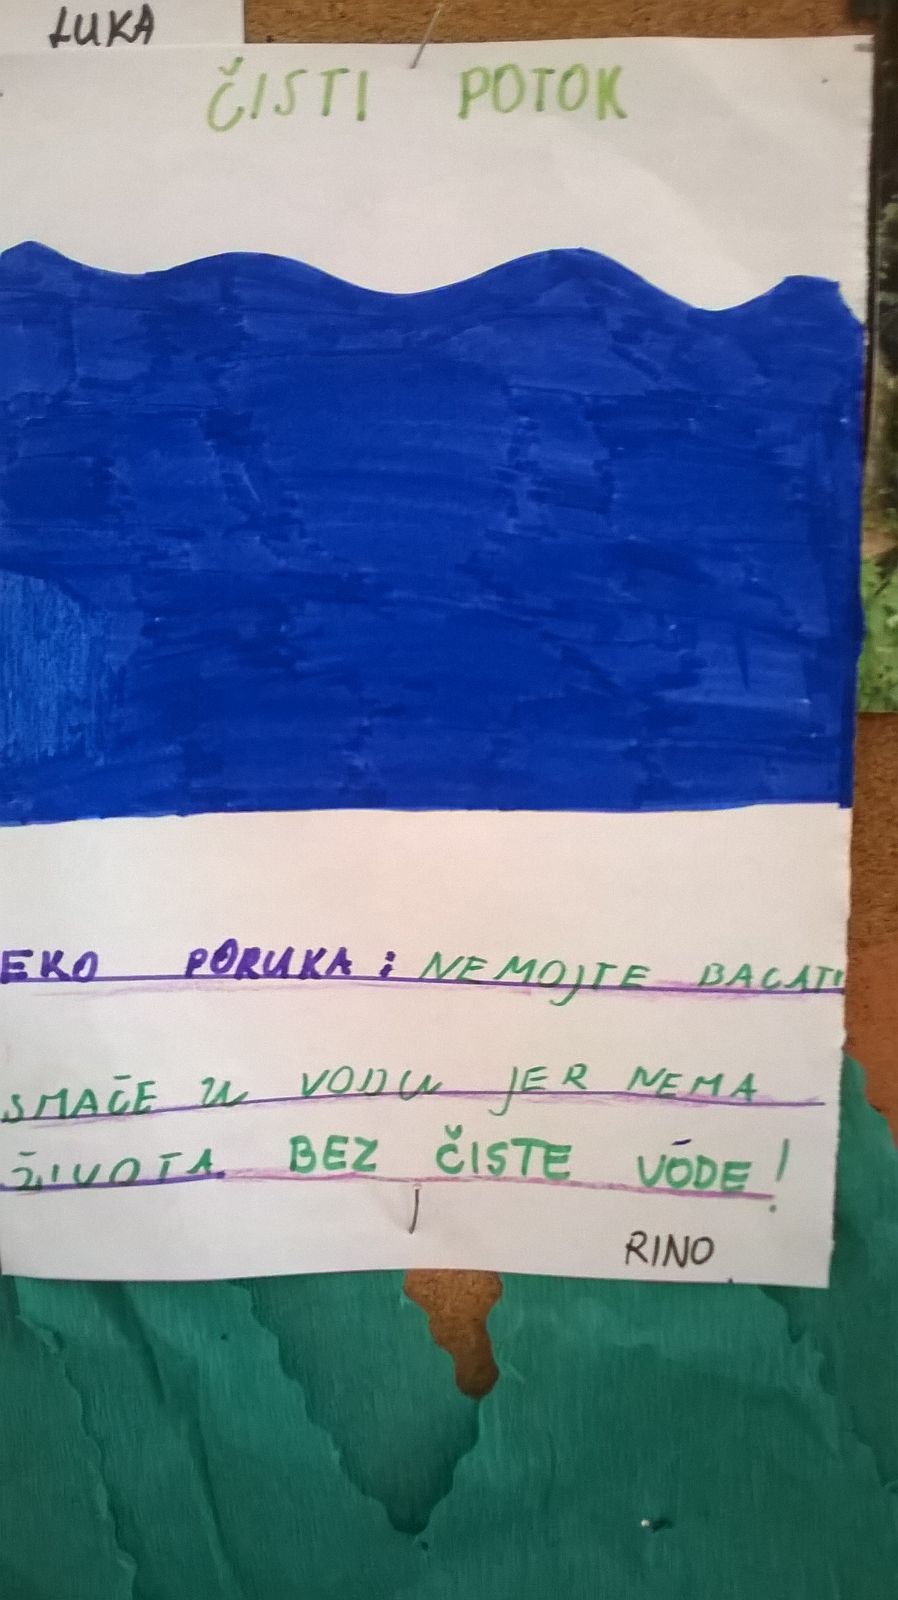 LUKA
ČISTI POTOK
EKO PORUKA: NEMOJTE BACATI
SMAČE U VODU JER NEMA
ŽIVOTA BEZ ČISTE VODE!
RINO